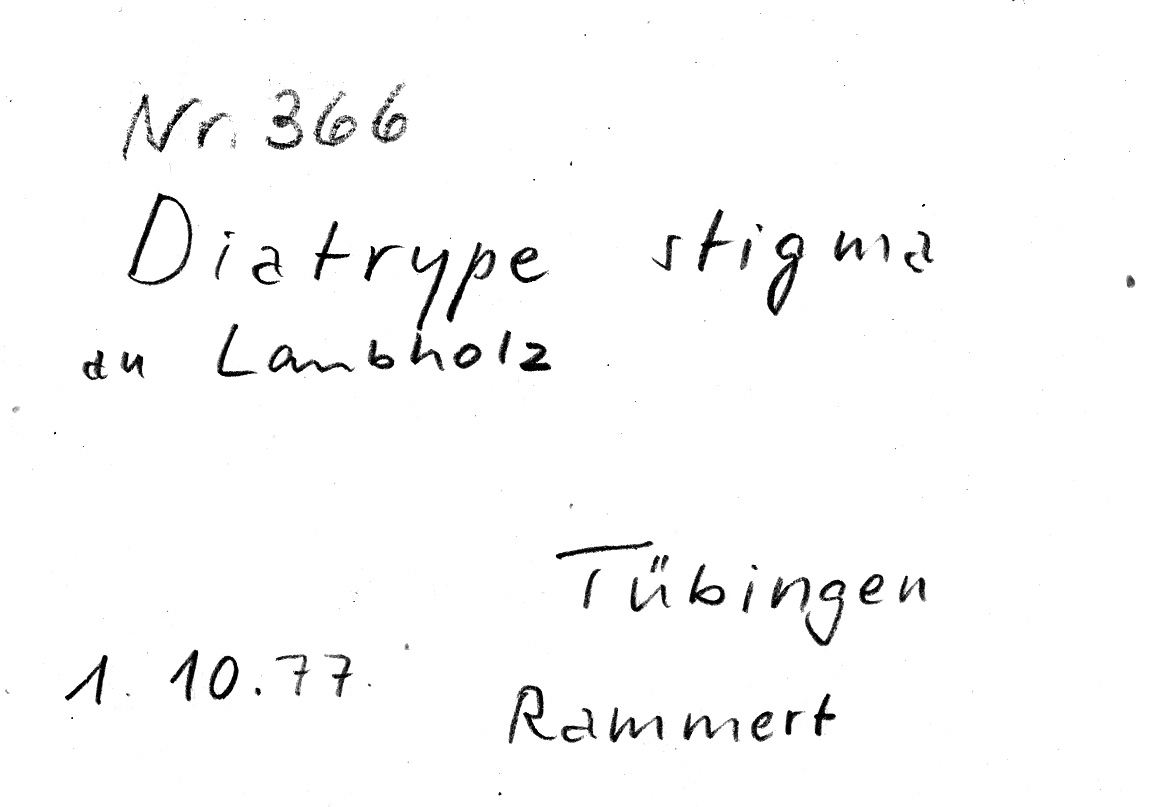 Nr. 366
Diatrype stigma
an Laubholz
Tübingen
1. 10. 77.
Rammert